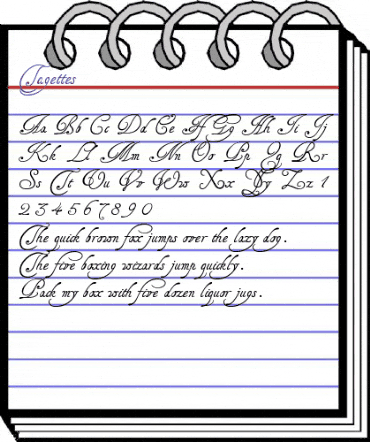 Tagettes
Aa Bb Cc Dd Ee Ff Gg Hh Ii Jj
Kk Ll Mm Nn Oo Pp Qq Rr
Ss Tt Uu Vv Ww Xx Yy Zz 1
2 3 4 5 6 7 8 9 0
The quick brown fox jumps over the lazy dog.
The five boxing wizards jump quickly.
Pack my box with five dozen liquor jugs.